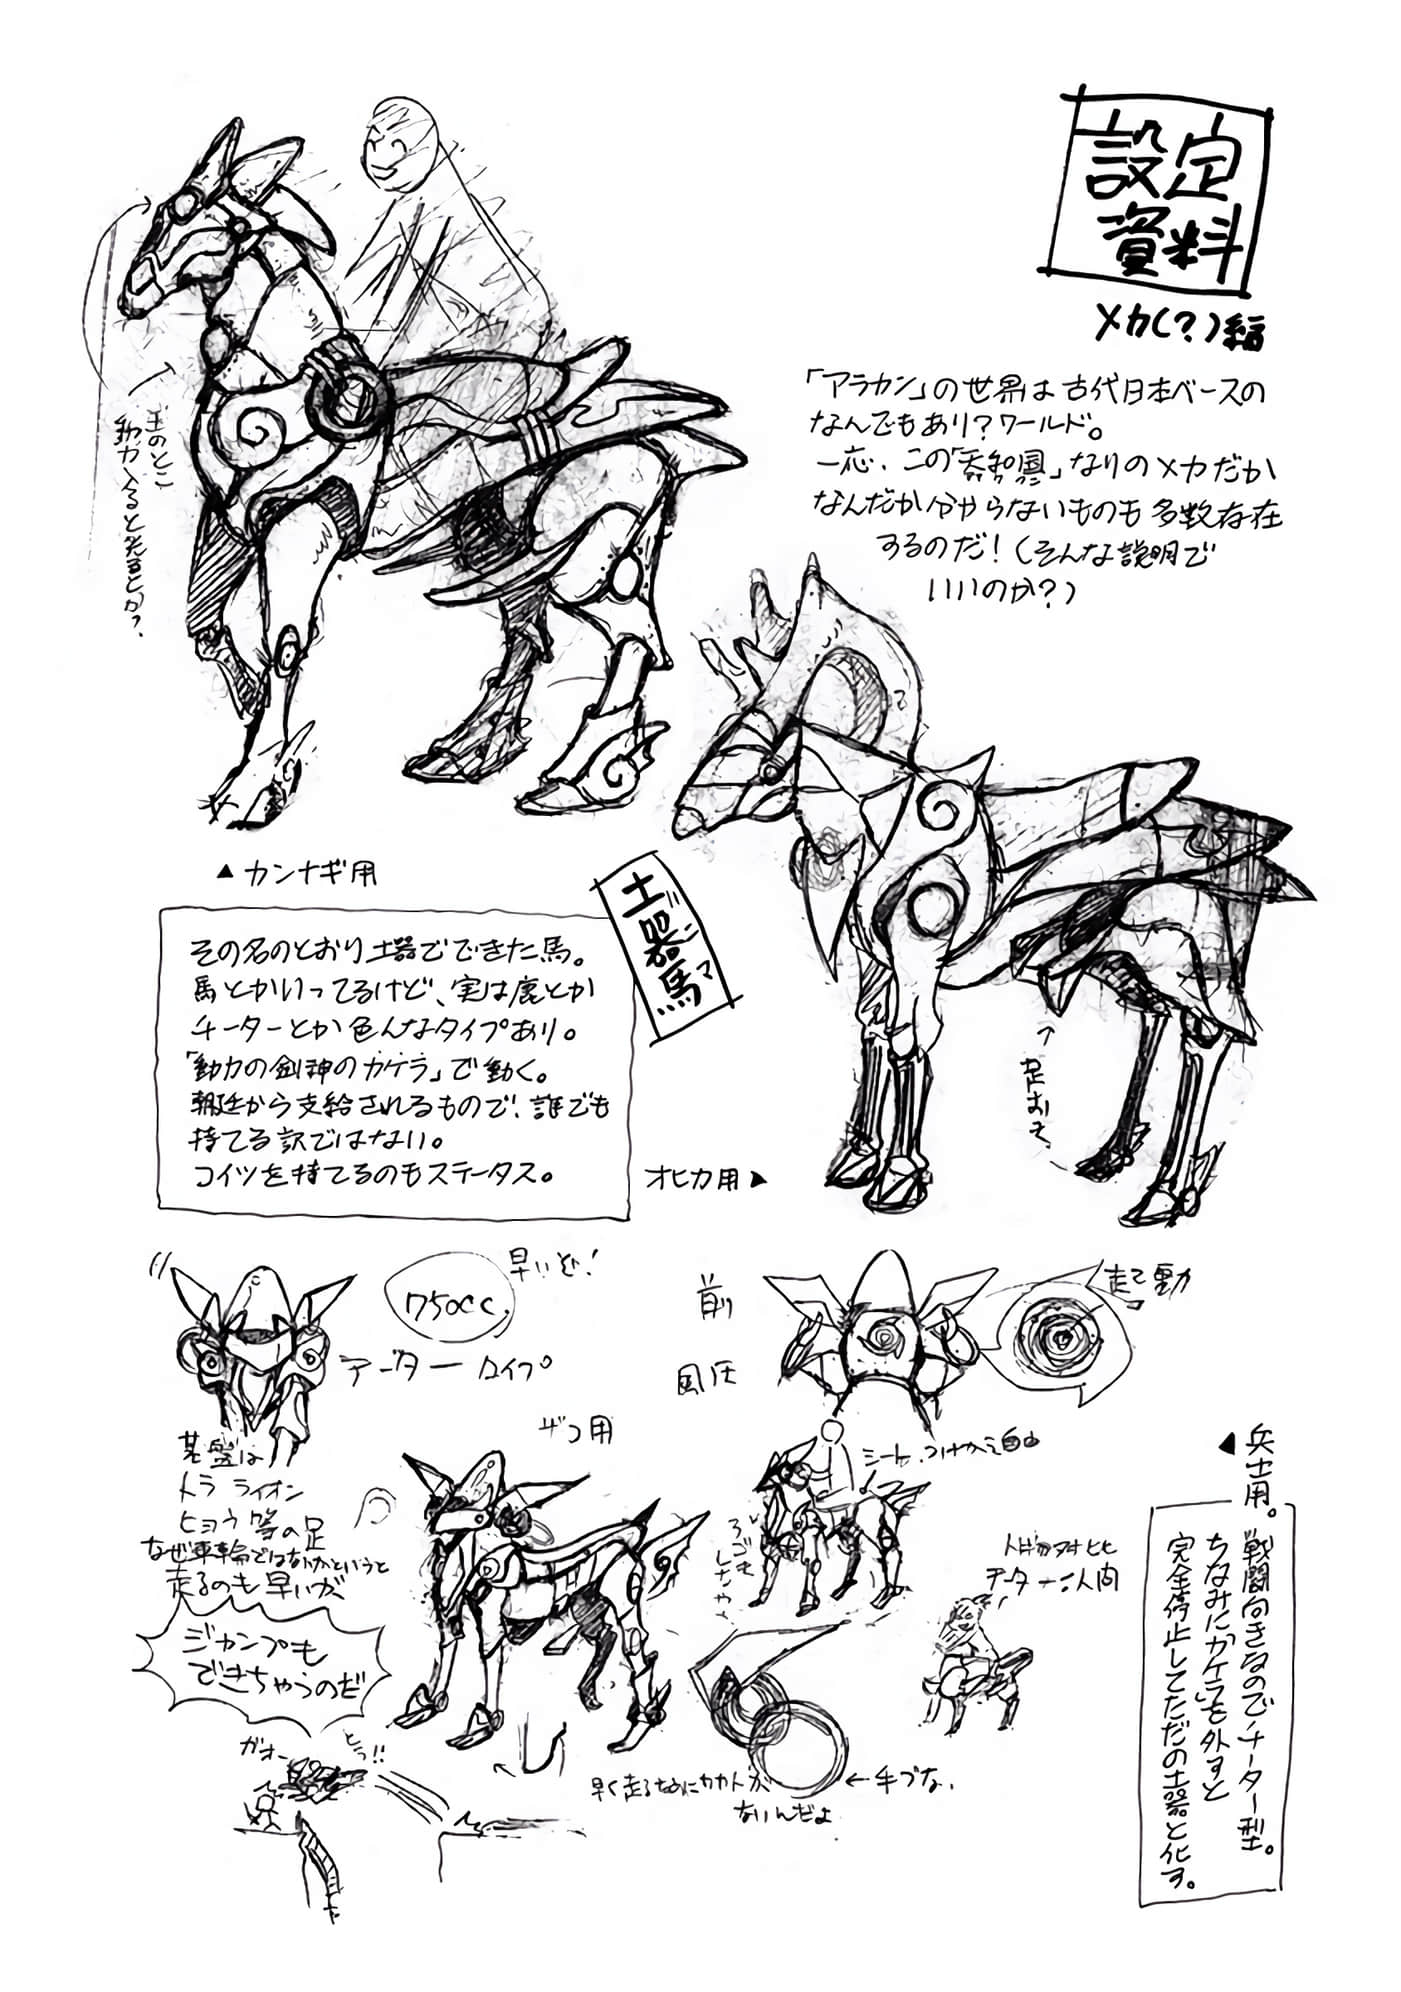 設定
資料
メカ(?)編
「アラカン」の世界は古代日本ベースの
なんでもあり?ワールド。
一応、この「
」なりのメカだか
なんだか分からないものも多数存在
するのだ!(そんな説明で
いいのか?)
玉のとこ
動力入ると光るとか?
▲カンナギ用
土器馬
ドキウマ
その名のとおり土器でできた馬。
馬とかいってるけど、実は鹿とか
チーターとか色んなタイプあり。
「動力の剣神のカケラ」で動く。
朝廷から支給されるもので、誰でも
持てる訳ではない。
コイツを持てるのもステータス。
オヒカ用▶
足おき
750cc.
早いぞ!
チーター タイプ
前
風圧
起動
ザコ用
基盤は
トラ ライオン
ヒョウ等の足
なぜ車輪ではないかというと
走るのも早いが
ジャンプも
できちゃうのだ
ガオー
とぅ!!
シート、つけかえ自由
チーター人間
早く走るためにカカトが
ないんだよ
←手づな、
◀兵士用。
戦闘向きなのでチーター型。
ちなみに「カケラ」を外すと
完全停止してただの土器と化す。